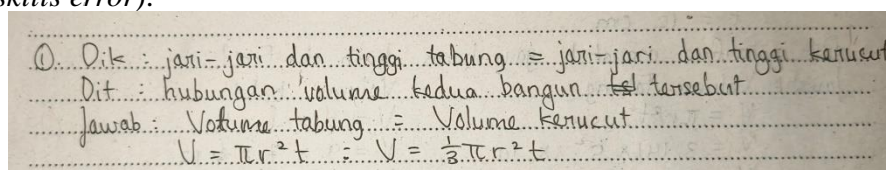 skills error).
①. Dik : jari-jari dan tinggi tabung = jari-jari dan tinggi kerucut
Dit : hubungan volume kedua bangun tersebut
Jawab : Volume tabung = Volume kerucut
V = πr²t = V = ⅓πr²t